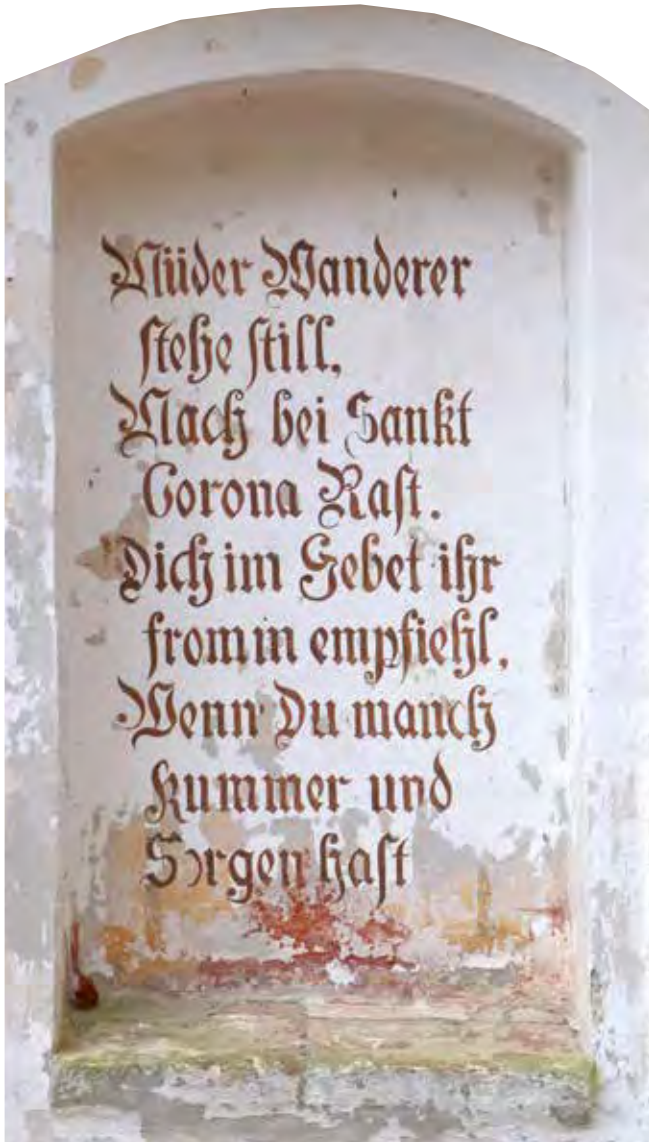 Müder Wanderer
stehe still,
Mach bei Sankt
Corona Rast.
Dich im Gebet ihr
fromm empfiehl,
Wenn Du manch
Kummer und
Sorgen hast